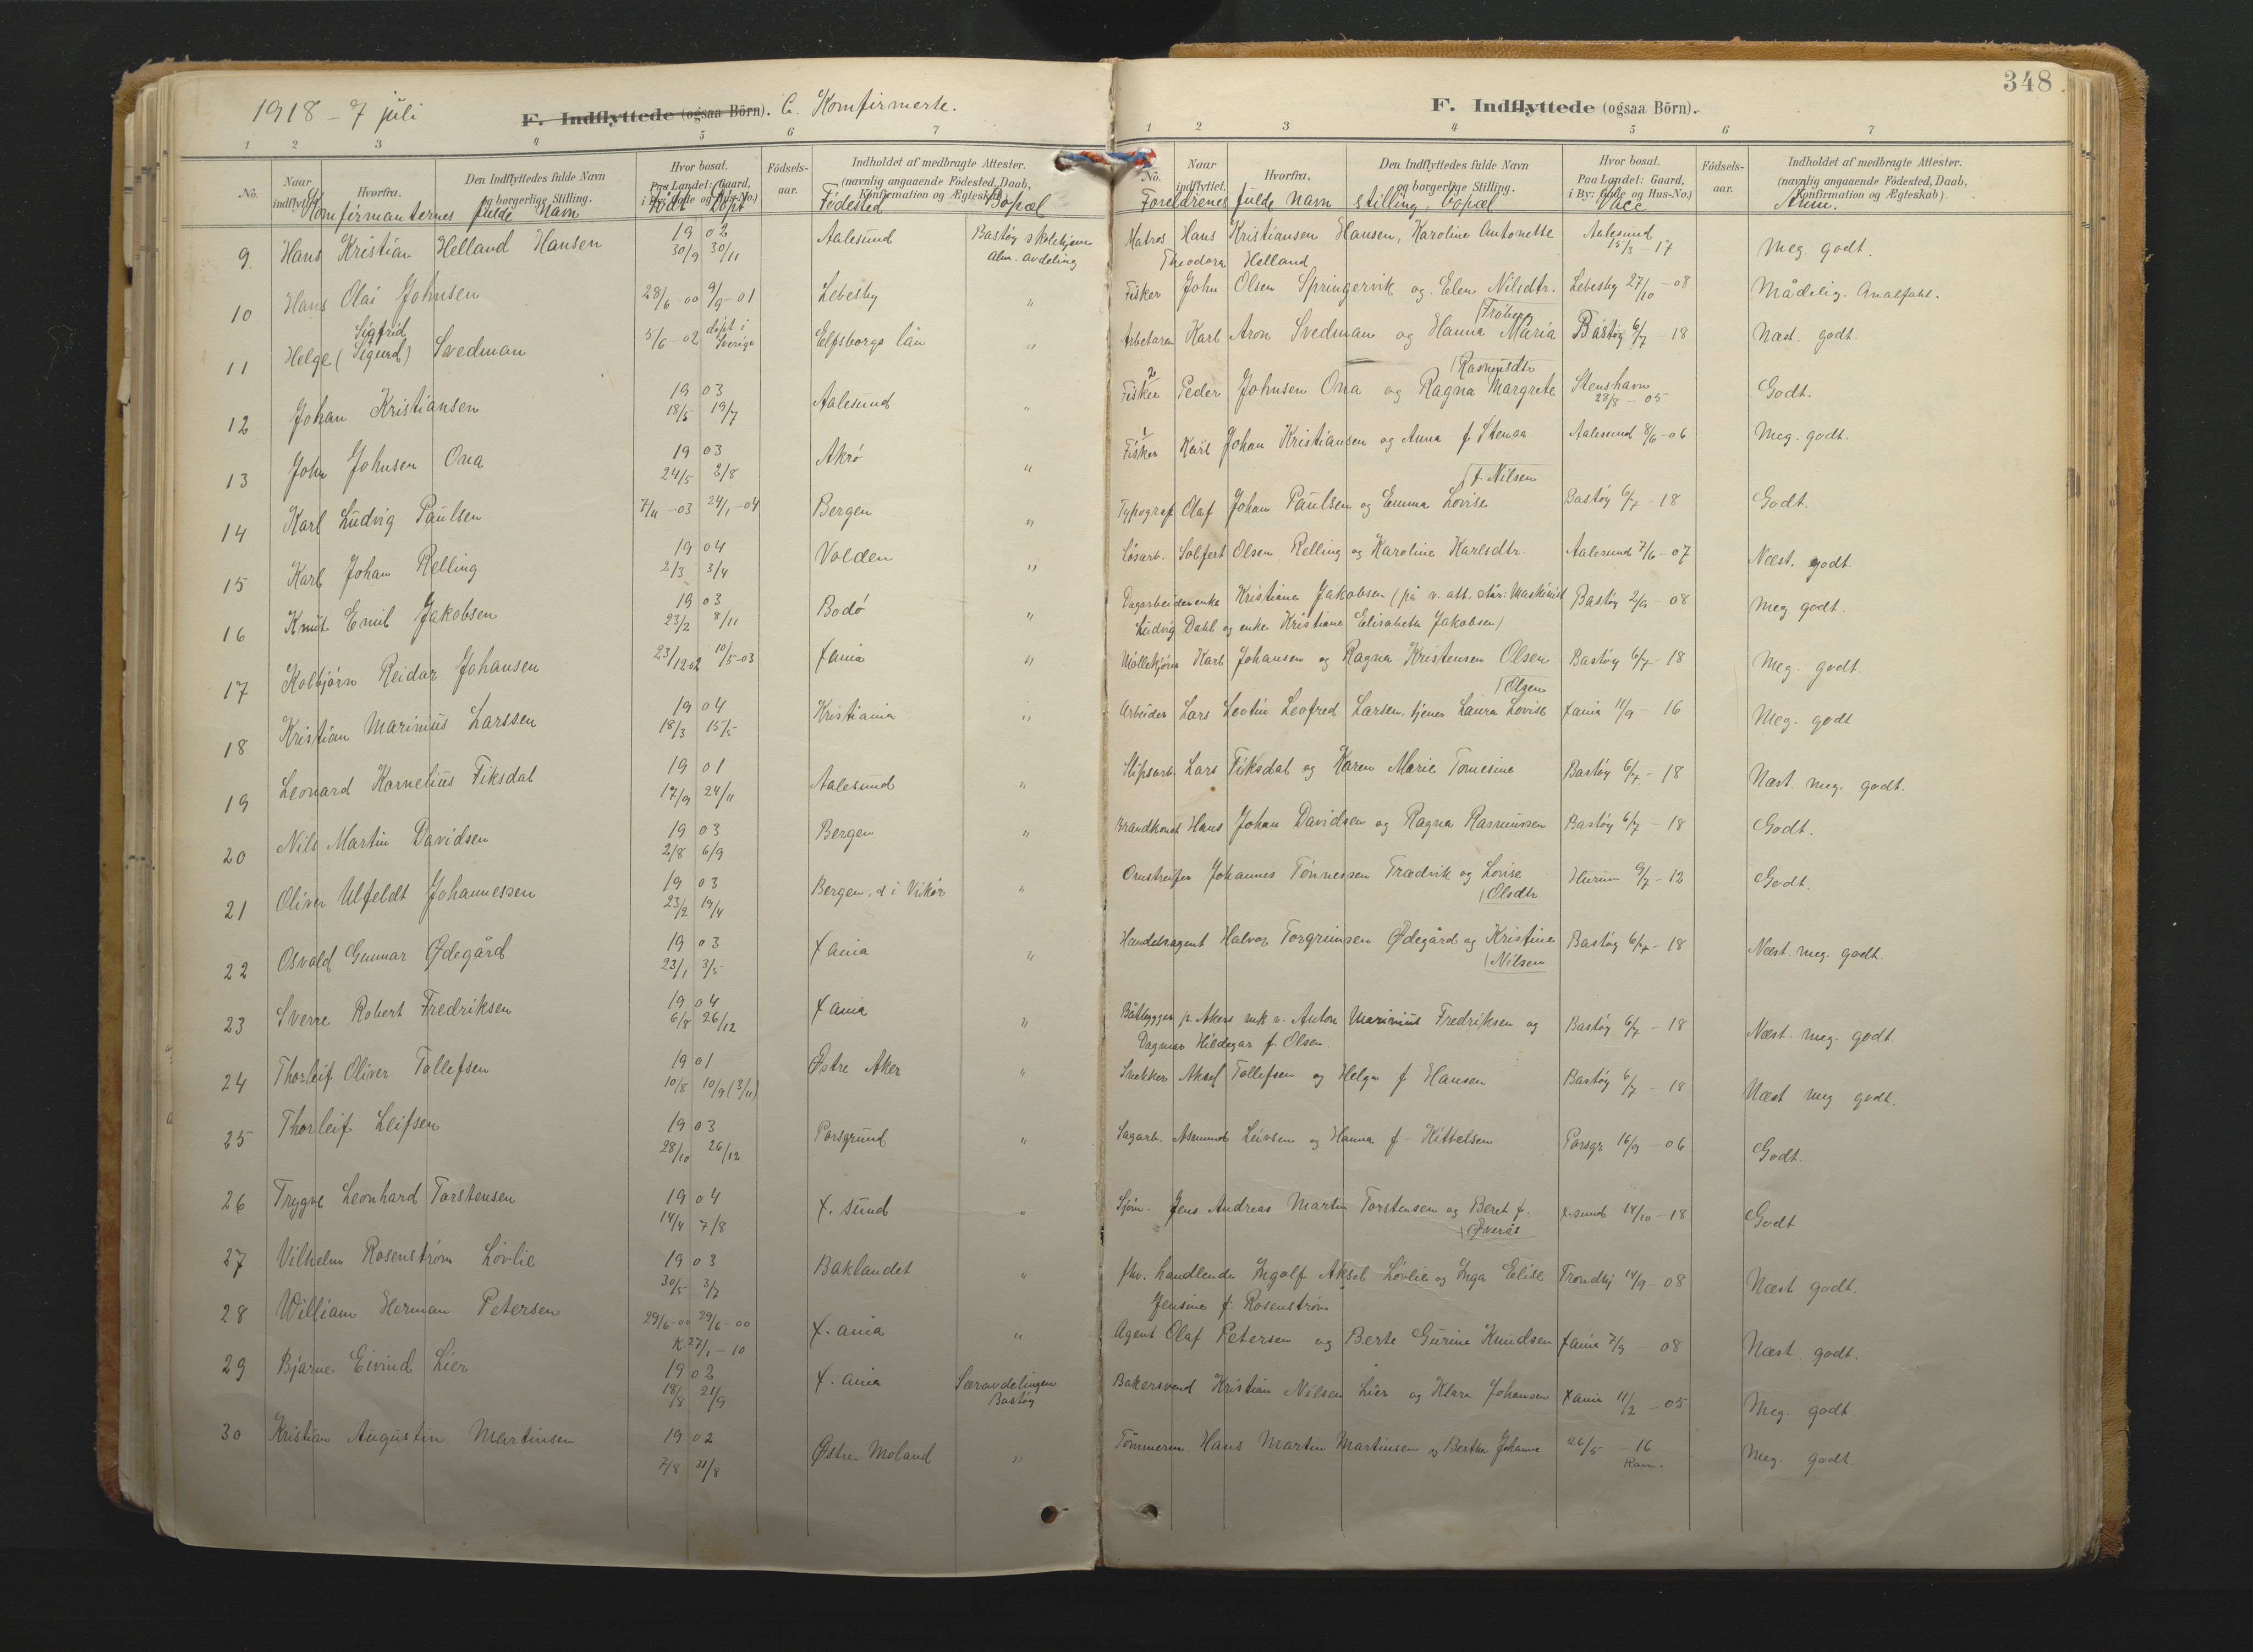 1918 - 7 juli
F. Indflyttede (ogsaa Börn). C. Komfirmerte.
1 2 3 4 5 6 7
No. Naar indflyttet. Hvorfra. Den Indflyttedes fulde Navn og borgerlige Stilling. Hvor bosat. Paa Landet: Gaard, i By: Gade og Hus-No.) Födsels-aar. Indholdet af medbragte Attester. (navnlig angaaende Födested, Daab, Konfirmation og Ægteskab)
Komfirmanternes fulde Navn Født Døpt Födested Bopæl
9. Hans Kristian Helland Hansen 1902 30/9 30/11 Aalesund Bastøy skolehjem alm. avdeling
10 Hans Olai Johnsen 28/6-00 9/9-01 Lebesby "
11 Helge (Sigurd) Sigfrid Svedman 5/6-02 døpt i Sverige Elfsborgs län "
12 Johan Kristiansen 1903 18/5 19/7 Aalesund "
13 John Johnsen Ona 1903 24/5 2/8 Akrø "
14 Karl Ludvig Paulsen 7/11-03 24/1-04 Bergen "
15 Karl Johan Relling 1904 2/3 3/4 Volden "
16 Knut Emil Jakobsen 1903 23/2 8/11 Bodø "
17 Kolbjørn Reidar Johansen 23/12 02 10/5-03 Xania "
18 Kristian Marinius Larssen 1904 18/3 15/5 Kristiania "
19 Leonard Kornelius Fiksdal 1901 17/9 24/11 Aalesund "
20 Nils Martin Davidsen 1903 2/8 6/9 Bergen "
21 Oliver Ulfeldt Johannessen 1903 23/2 19/4 Bergen, d i Vikør "
22 Osvald Gunnar Ødegård 1903 23/1 3/5 Xania "
23 Sverre Robert Fredriksen 1904 6/8 26/12 Xania "
24 Thorleif Oliver Tollefsen 1901 10/8 10/9 (3/11) Østre Aker "
25 Thorleif Leifsen 1903 28/10 26/12 Porsgrund "
26 Trygve Leonhard Torstensen 1904 14/4 7/8 X.sund "
27 Vilhelm Rosenstrøm Løvlie 1903 30/5 3/7 Baklandet "
28 William Herman Petersen 29/6-00 29/6-00 K. 27/1-10 X.ania "
29 Bjarne Eivind Lier 1902 18/8 21/9 X.ania Særavdelingen Bastøy
30 Kristian Augustin Martinsen 1902 7/8 31/8 Østre Moland "
348
F. Indflyttede (ogsaa Börn).
1 2 3 4 5 6 7
No. Naar indflyttet. Hvorfra. Den Indflyttedes fulde Navn og borgerlige Stilling. Hvor bosat. Paa Landet: Gaard, i By: Gade og Hus-No.) Födsels-aar. Indholdet af medbragte Attester. (navnlig angaaende Födested, Daab, Konfirmation og Ægteskab).
Foreldrenes fulde navn stilling, bopæl Vacc Anm.
Matros Hans Kristiansen Hansen, Karoline Antonette Aalesund 15/3-17 Meg. godt.
Theodora Helland
Fisker John Olsen Springervik og Elen Nilsdtr. Lebesby 27/10-08 Mådelig. Analfabt.
Arbetaren Karl Aron Svedman og Hanna Maria Fröberg Bastøy 6/7-18 Næst. godt.
2 Fisker Peder Johnsen Ona og Ragna Margrete Rasmusdtr Stenshavn 28/8-05 Godt.
1 Fisker Karl Johan Kristiansen og Anna f. Stenaa Aalesund 8/6-06 Meg. godt.
Typograf Olaf Johan Paulsen og Emma Lovise f. Nilsen Bastøy 6/7-18 Godt.
Løsarb. Solfert Olsen Relling og Karoline Karlsdtr. Aalesund 7/6-07 Næst. godt.
Dagarbeiderenke Kristiane Jakobsen (på v. att. står: Maskinist Bastøy 2/9-08 Meg godt.
Ludvig Dahl og enke Kristiane Elisabeth Jakobsen)
Møllekjører Karl Johansen og Ragna Kristensen Olsen Bastøy 6/7-18 Meg. godt.
Arbeider Lars Leotin Leofred Larsen, tjener Laura Lovise Olsen Xania 11/9-16 Meg. godt
Slipsarb. Lars Fiksdal og Karen Marie Tomesine Bastøy 6/7-18 Næst. meg. godt.
Brandkonst Hans Johan Davidsen og Ragna Rasmussen Bastøy 6/7-18 Godt.
Omstreifer Johannes Tønnessen Trædvik og Lovise Olsdtr Hurum 9/7-12 Godt.
Handelsagent Halvor Torgrimsen Ødegård og Kristine Nilsen Bastøy 6/7-18 Næst. meg. godt.
Båtbygger p. Akers mk v. Anton Marinius Fredriksen og Bastøy 6/7-18 Næst. meg. godt
Dagmar Hildegar f. Olsen.
Snekker Aksel Tollefsen og Helga f. Hansen Bastøy 6/7-18 Næst meg godt.
Sagarb. Asmund Leivsen og Hanna f. Kittelsen Porsgr 16/9-06 Godt.
Sjøm. Jens Andreas Martin Torstensen og Beret f. Øverås X-sund 14/10-18 Godt
fhv. handlende Ingolf Aksel Løvlie og Inga Elise Trondhj 14/9-08 Næst godt.
Jensine f. Rosenstrøm
Agent Olaf Petersen og Berte Gurine Knudsen Xania 7/9-08 Næst. godt.
Bakersvend Kristian Nilsen Lier og Klara Johansen Xania 11/2-05 Meg. godt
Tømmerm. Hans Martin Martinsen og Bertha Johanne 26/5-16 Meg. godt.